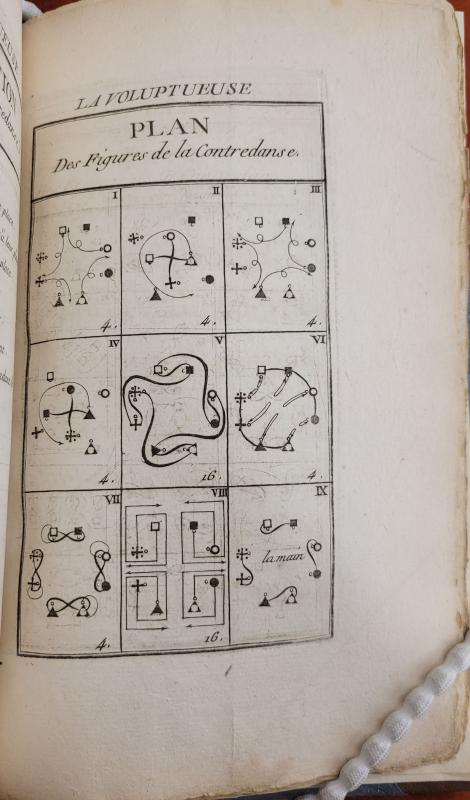 LA VOLUPTUEUSE
PLAN
Des Figures de la Contredanse.
I
II
III
4.
4.
4.
IV
V
VI
4.
16.
4.
VII
VIII
IX
la main
4.
16.